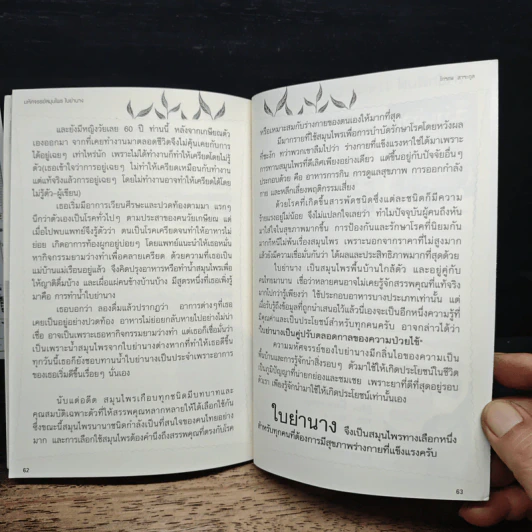 มหัศจรรย์สมุนไพร ใบย่านาง
และยังมีหญิงวัยเลย 60 ปี ท่านนี้ หลังจากเกษียณตัว
เองออกมา จากที่เคยทำงานมาตลอดชีวิตจึงไม่คุ้นเคยกับการ
ได้อยู่เฉยๆ เท่าไหร่นัก เพราะไม่ได้ทำงานก็ทำให้เครียดโดยไม่รู้
ตัว(เธอเข้าใจว่าการอยู่เฉยๆ ไม่ทำให้เครียดเหมือนกับทำงาน
แต่แท้จริงแล้วการอยู่เฉยๆ โดยไม่ทำงานอาจทำให้เครียดได้โดย
ไม่รู้ตัว-ผู้เขียน)
เธอเริ่มมีอาการเวียนศีรษะและปวดท้องตามมา แรกๆ
นึกว่าตัวเองเป็นโรคทั่วไปๆ ตามประสาของคนวัยเกษียณ แต่
เมื่อไปพบแพทย์จึงรู้ตัวว่า ตนเป็นโรคเครียดจนทำให้อาหารไม่
ย่อย เกิดอาการท้องผูกอยู่บ่อยๆ โดยแพทย์แนะนำให้เธอหมั่น
หากิจกรรมยามว่างทำเพื่อคลายเครียด ด้วยความที่เธอเป็น
แม่บ้านแม่เรือนอยู่แล้ว จึงคิดปรุงอาหารหรือทำน้ำสมุนไพรเพื่อ
ให้ญาติดื่มบ้าง และเผื่อแผ่คนข้างบ้านบ้าง มีสูตรหนึ่งที่เธอเรียนรู้
มาคือ การทำน้ำใบย่านาง
เธอบอกว่า ลองดื่มแล้วปรากฏว่า อาการต่างๆที่เธอ
เคยเป็นอยู่อย่างปวดท้อง อาหารไม่ย่อยกลับหายไปอย่างไม่น่า
เชื่อ อาจเป็นเพราะเธอมีกิจกรรมยามว่างทำ แต่เธอก็เชื่อมั่นว่า
เป็นเพราะน้ำสมุนไพรจากใบย่านางต่างหากที่ทำให้เธอดีขึ้น
ทุกวันนี้เธอก็ยังชอบทานน้ำใบย่านางเป็นประจำเพราะอาการ
ของเธอเริ่มดีขึ้นเรื่อยๆ นั่นเอง
นับแต่อดีต สมุนไพรเกือบทุกชนิดมีบทบาทและ
คุณสมบัติเฉพาะตัวที่ให้สรรพคุณหลากหลายให้ได้เลือกใช้กัน
ซึ่งขณะนี้สมุนไพรนานาชนิดกำลังเป็นที่สนใจของคนไทยอย่าง
มาก และการเลือกใช้สมุนไพรต้องคำนึงถึงสรรพคุณที่ตรงกับโรค
62
หรือเหมาะสมกับร่างกายของตนเองให้มากที่สุด
มีมากรายที่ใช้สมุนไพรเพื่อการบำบัดรักษาโรคโดยหวังผล
ที่ชะงัก ทว่าพวกเขาลืมไปว่า ร่างกายที่แข็งแรงหาใช่ได้มาเพราะ
การทานสมุนไพรที่ดีเลิศเพียงอย่างเดียว แต่ขึ้นอยู่กับปัจจัยอื่นๆ
ประกอบด้วย คือ อาหารการกิน การดูแลสุขภาพ การออกกำลัง
กาย และหลีกเลี่ยงพฤติกรรมเสี่ยง
ด้วยโรคที่เกิดขึ้นสารพัดชนิดซึ่งแต่ละชนิดก็มีความ
ร้ายแรงอยู่ไม่น้อย จึงไม่แปลกใจเลยว่า ทำไมปัจจุบันผู้คนถึงหัน
มาใส่ใจในสุขภาพมากขึ้น การป้องกันและรักษาโรคที่นิยมกัน
มากก็หนีไม่พ้นเรื่องสมุนไพร เพราะนอกจากราคาที่ไม่สูงมาก
แล้วยังมีความเชื่อมั่นกันว่า ได้ผลและประสิทธิภาพมากที่สุดด้วย
ใบย่านาง เป็นสมุนไพรพื้นบ้านใกล้ตัว และอยู่คู่กับ
คนไทยมานาน เชื่อว่าหลายคนอาจไม่เคยรู้จักสรรพคุณที่แท้จริง
มากไปกว่ารู้เพียงว่า ใช้ประกอบอาหารบางประเภทเท่านั้น แต่
เมื่อรับรู้ถึงข้อมูลที่ถูกนำเสนอไว้แล้วนี่เองจะเป็นอีกหนึ่งความรู้ที่
มีคุณค่าและเป็นประโยชน์สำหรับทุกคนครับ อาจกล่าวได้ว่า
"ใบย่านางเป็นคู่ปรับตลอดกาลของความป่วยไข้"
ความมหัศจรรย์ของใบย่านางมีกลิ่นไอของความเป็น
พื้นบ้านและการรู้จักนำสิ่งรอบๆ ตัวมาใช้ให้เกิดประโยชน์ในชีวิต
เป็นภูมิปัญญาที่น่ายกย่องและชมเชย เพราะยาที่ดีที่สุดอยู่รอบ
ตัวเรา เพียงรู้จักนำมาใช้ให้เกิดประโยชน์เท่านั้นเอง
ใบย่านาง จึงเป็นสมุนไพรทางเลือกหนึ่ง
สำหรับทุกคนที่ต้องการมีสุขภาพร่างกายที่แข็งแรงครับ
63